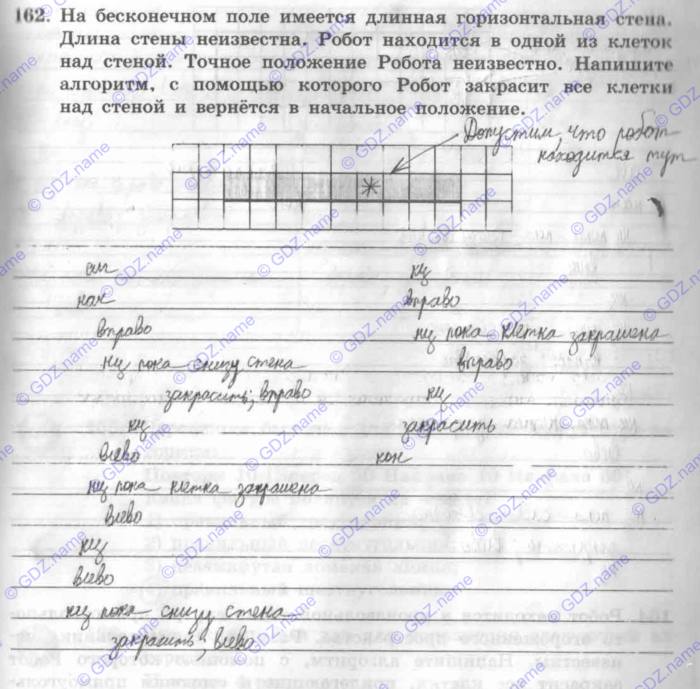 162. На бесконечном поле имеется длинная горизонтальная стена.
Длина стены неизвестна. Робот находится в одной из клеток
над стеной. Точное положение Робота неизвестно. Напишите
алгоритм, с помощью которого Робот закрасит все клетки
над стеной и вернётся в начальное положение.
Допустим, что робот
находится тут
алг
нач
вправо
нц пока снизу стена
закрасить; вправо
кц
влево
нц пока клетка закрашена
влево
кц
влево
нц пока снизу стена
закрасить; влево
кц
вправо
нц пока клетка закрашена
вправо
кц
закрасить
кон
© GDZ.name